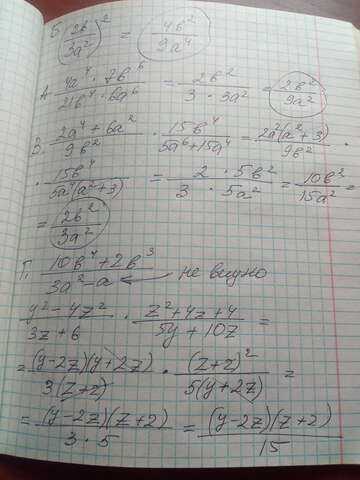 Б. (2b/3a²)² = 4b²/9a⁴
А. 4a⁴ · 7b⁶/21b⁴ · 6a⁶ = 2b²/3 · 3a² = 2b²/9a²
В. 2a⁴ + 6a²/9b² · 15b⁴/5a⁶ + 15a⁴ = 2a²(a² + 3)/9b² ·
· 15b⁴/5a⁴(a² + 3) = 2 · 5b²/3 · 5a² = 10b²/15a² =
= 2b²/3a²
Г. 10b⁴ + 2b³/3a² - a ← не видно
y² - 4z²/3z + 6 · z² + 4z + 4/5y + 10z =
= (y - 2z)(y + 2z)/3(z + 2) · (z + 2)²/5(y + 2z) =
= (y - 2z)(z + 2)/3 · 5 = (y - 2z)(z + 2)/15